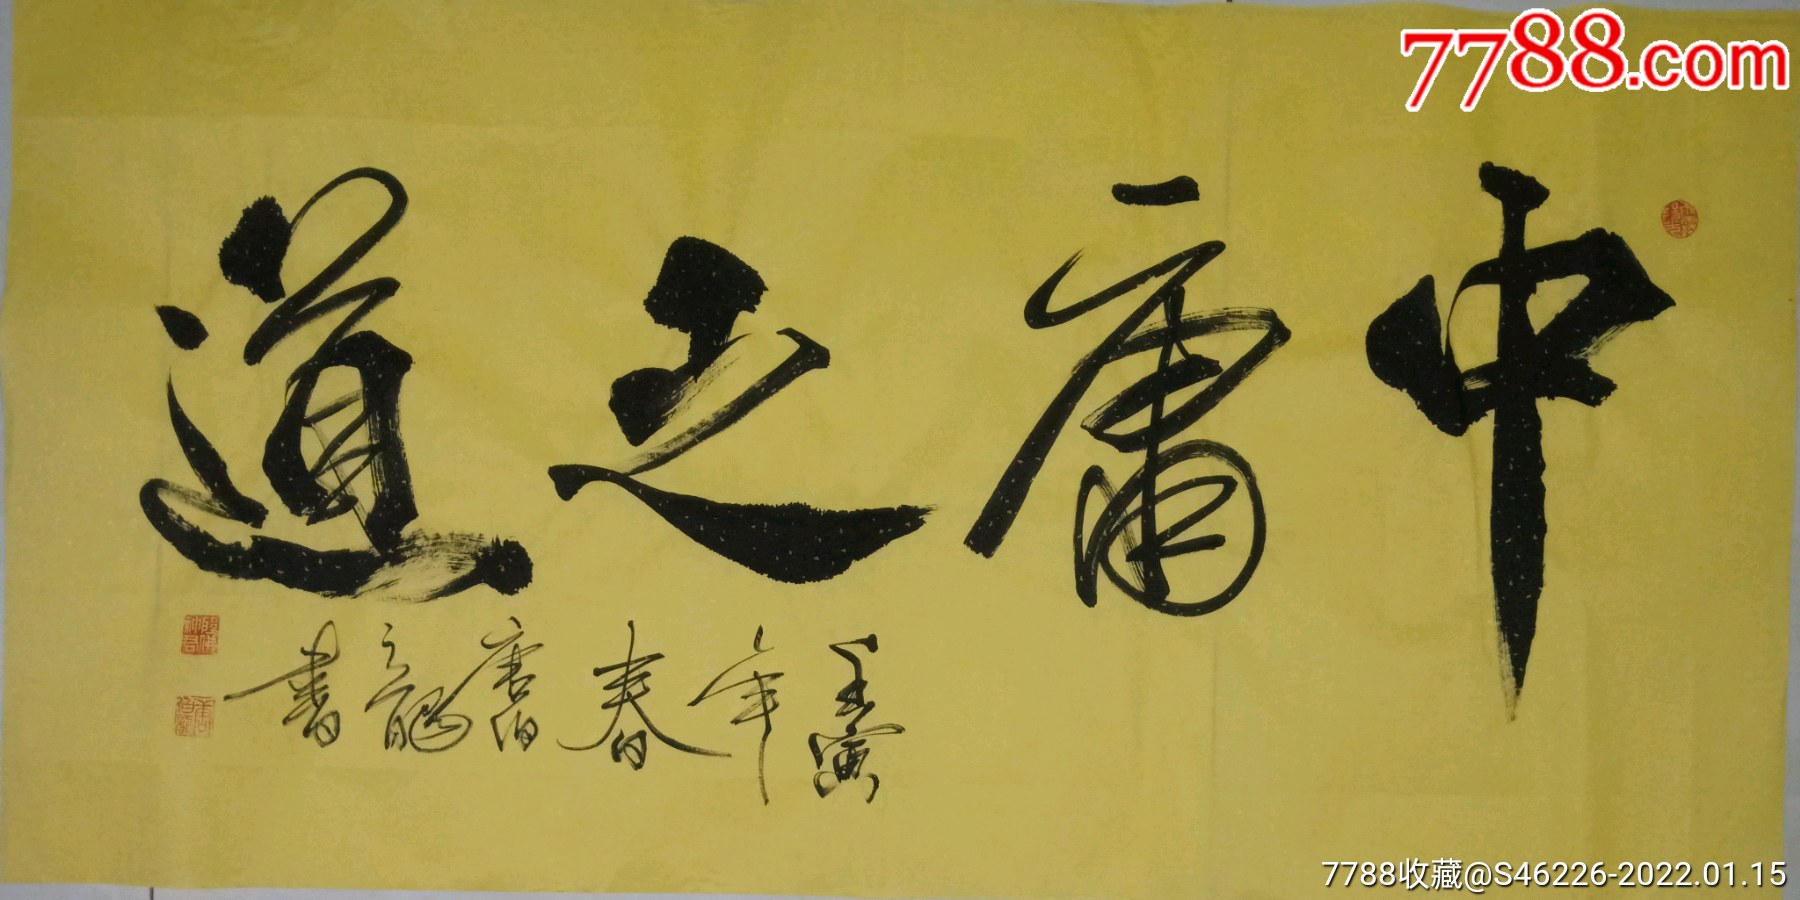 7788.com
中庸之道
壬寅年春唐伯龍書
7788收藏@S46226-2022.01.15